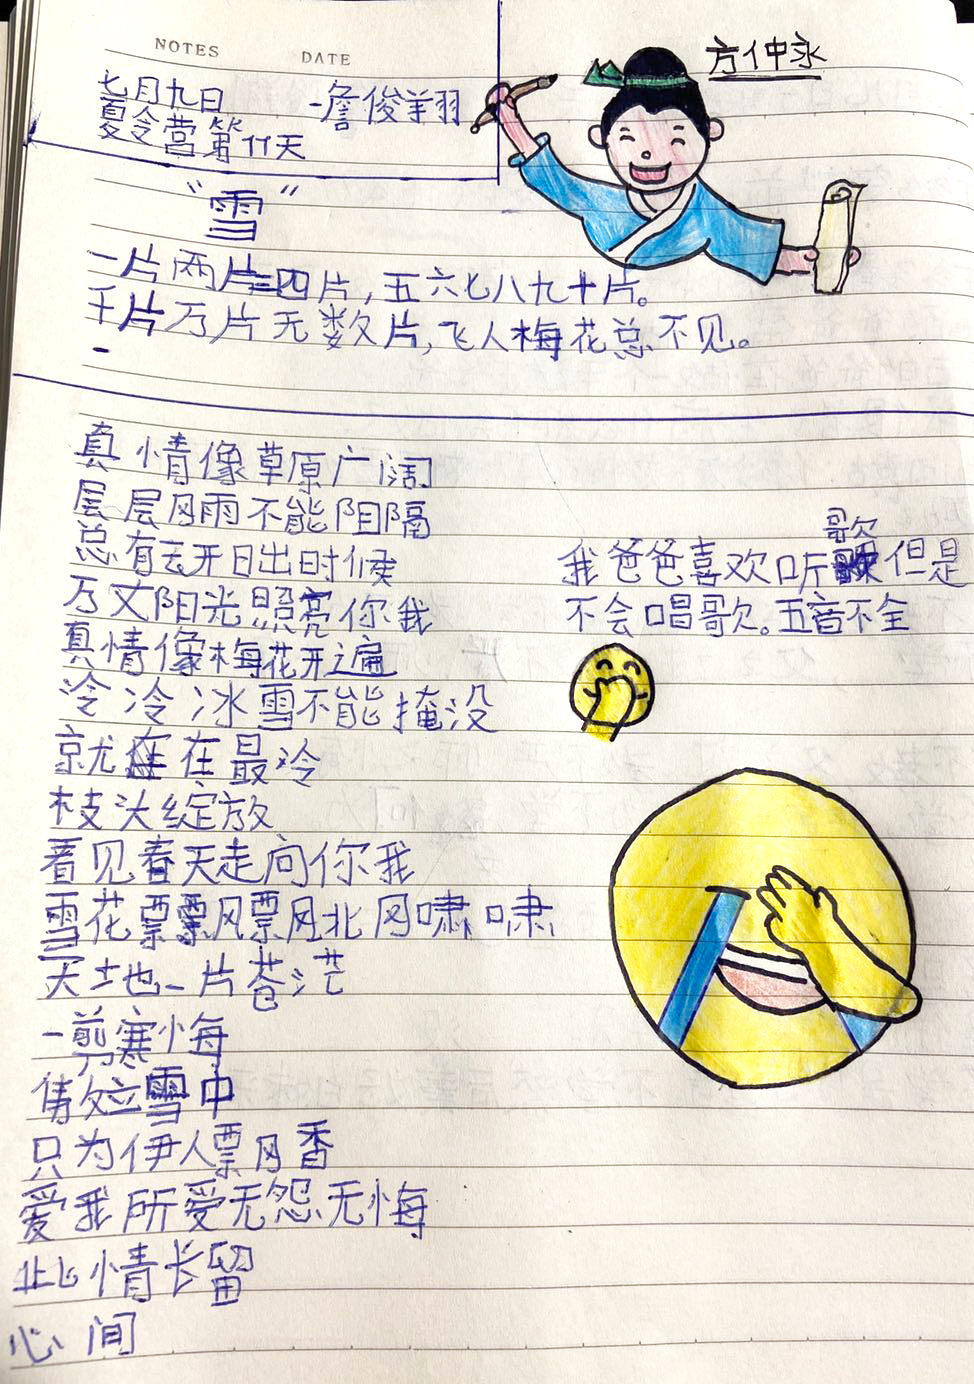 NOTES DATE
七月九日
夏令营第11天
-詹俊翔
方仲永
"雪"
一片两片三四片，五六七八九十片。
千片万片无数片，飞人梅花总不见。
真情像草原广阔
层层风雨不能阻隔
总有云开日出时候
万丈阳光照亮你我
真情像梅花开遍
冷冷冰雪不能掩没
就在最冷
枝头绽放
看见春天走向你我
雪花飘飘北风啸啸
天地一片苍茫
一剪寒梅
傲立雪中
只为伊人飘香
爱我所爱无怨无悔
此情长留
心间
我爸爸喜欢听歌但是
不会唱歌。五音不全